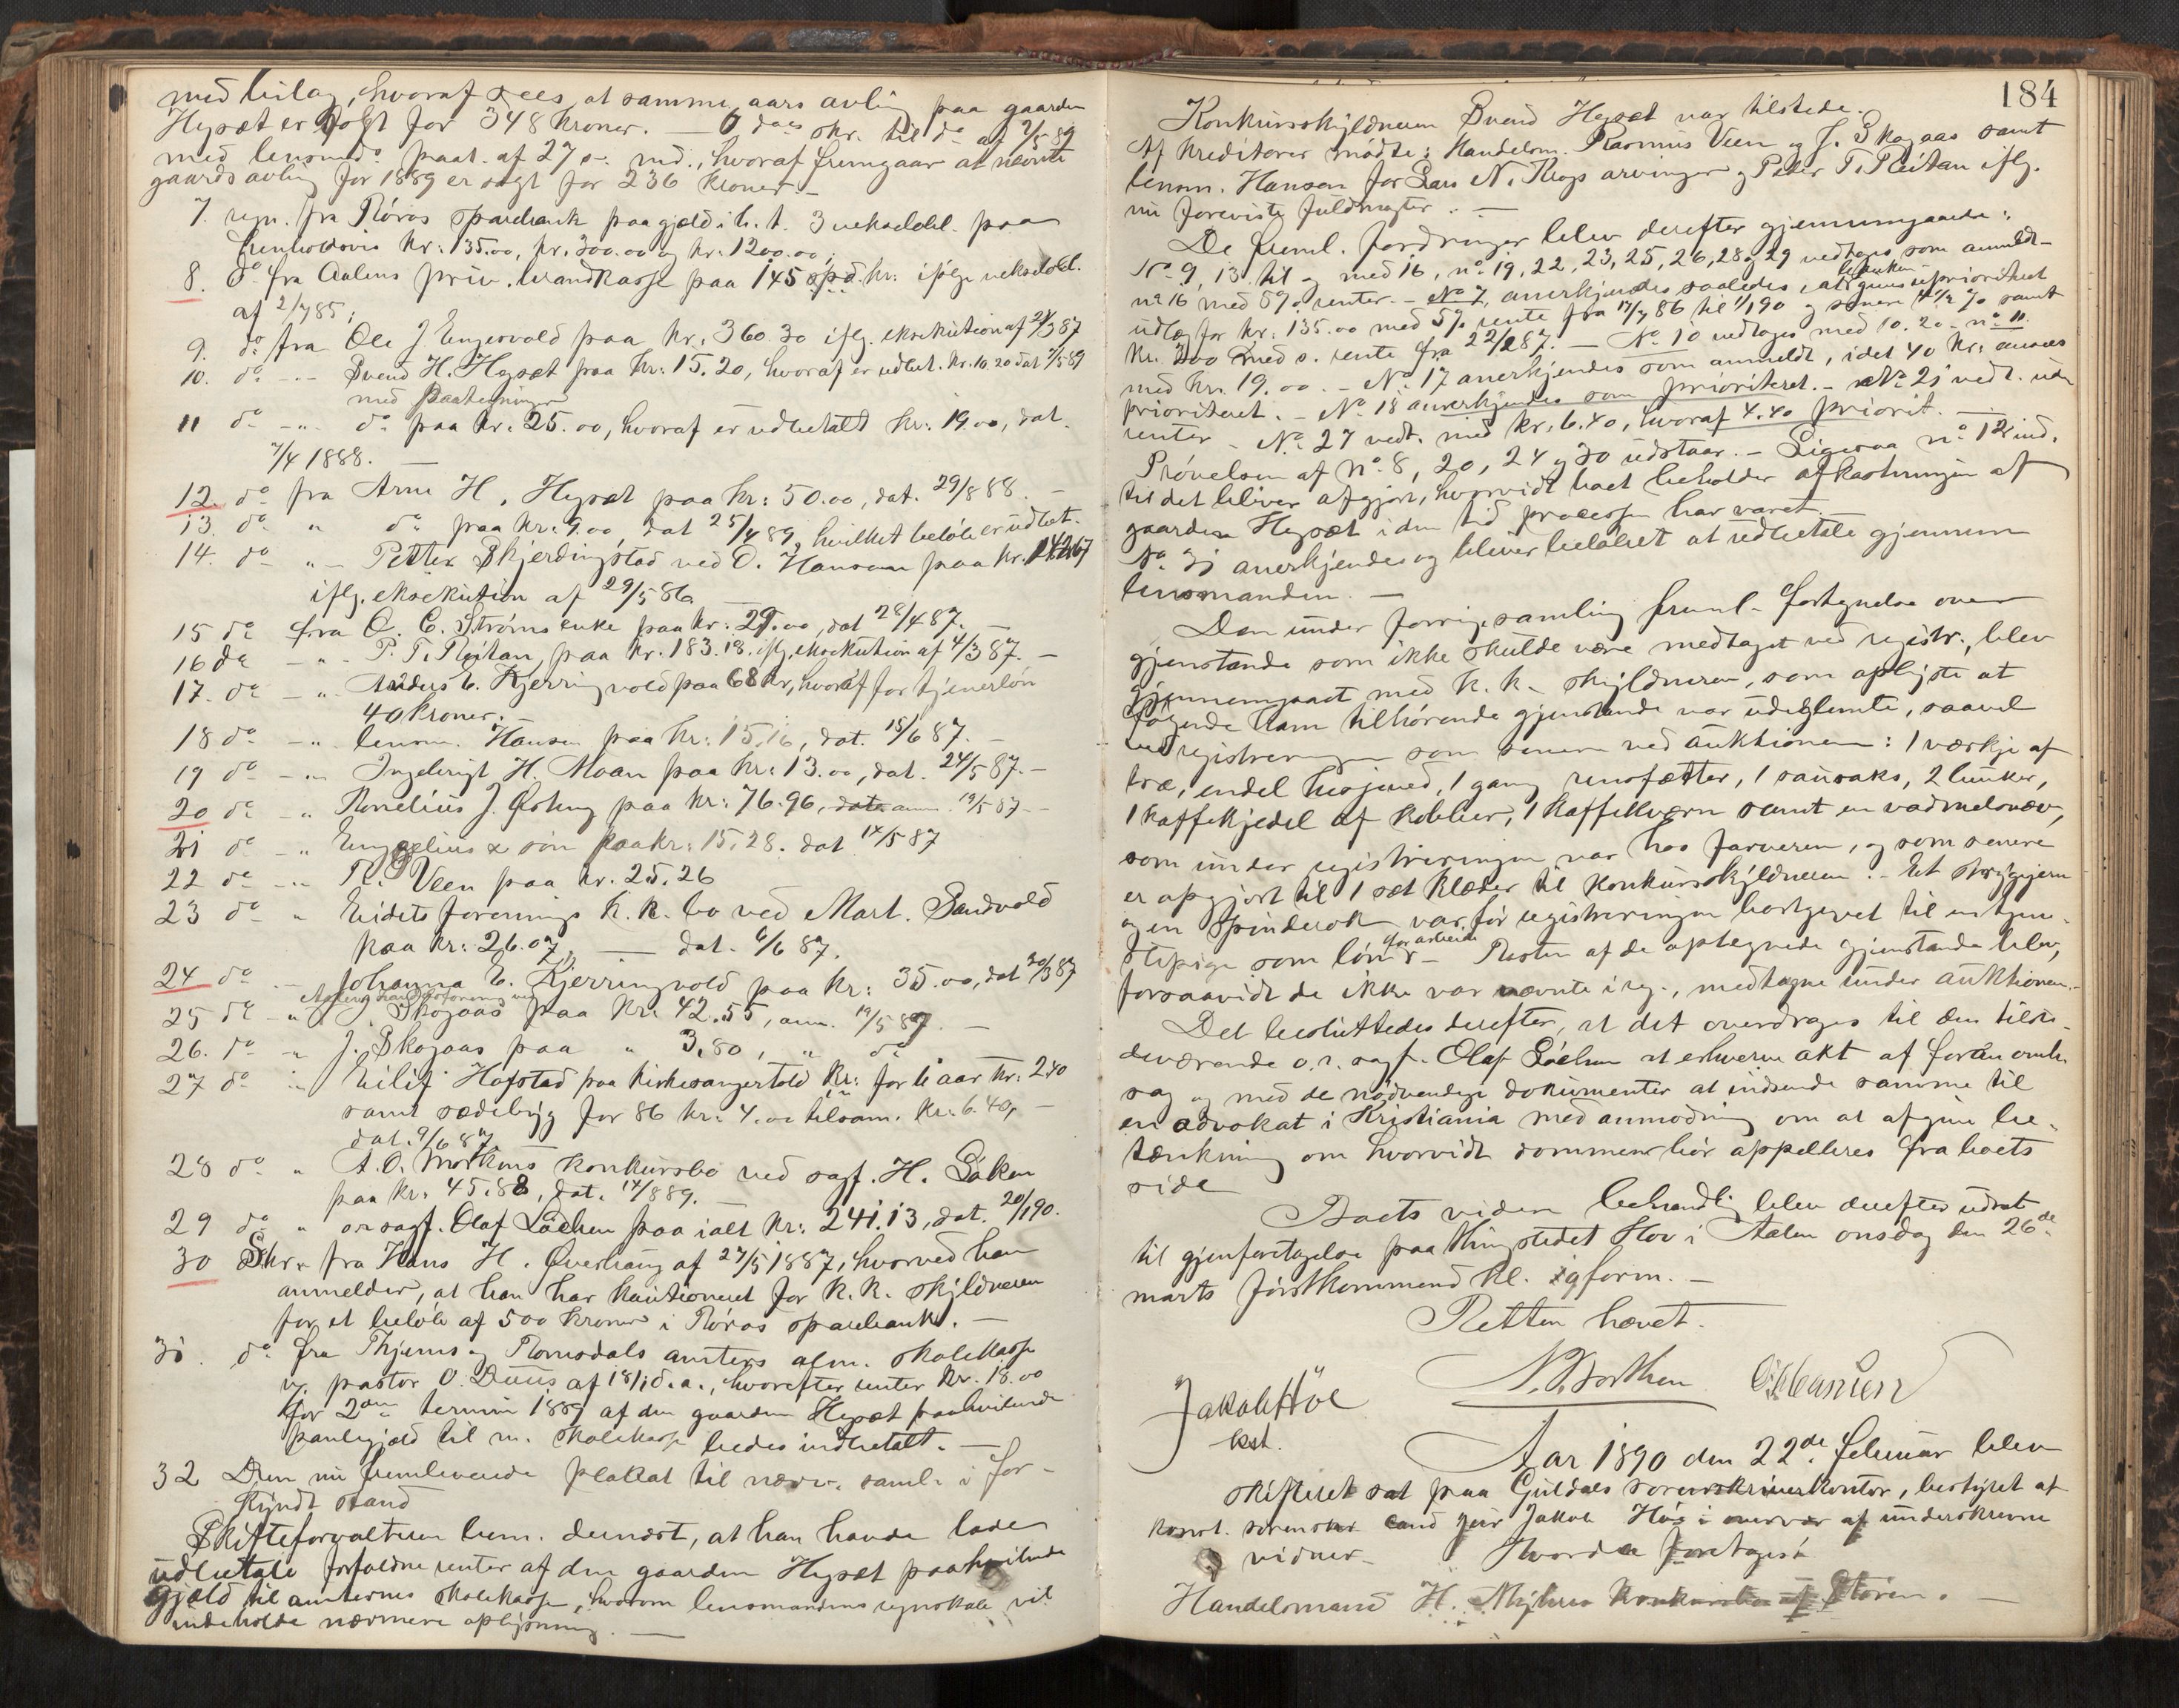 med bilag, hvoraf sees, at samme aars avling paa gaarden
Hegset er solgt for 348 kroner. — 6 daes skr. til do af 7/5 89
med lensmds paat. af 27 s. md., hvoraf fremgaar at nævnte
gaards avling for 1889 er solgt for 236 kroner. —
7. regn. fra Röros sparebank paa gjæld i h. t. 3 vekselobl. paa
henholdsvis kr. 135.00, kr. 300.00 og kr. 1200.00;
8. do fra Aalens priv. brandkasse paa 145 spd. kr. ifölge vekselobl.
af 2/7 85;
9. do fra Ole J Engesvold paa kr. 360.30 iflg. eksekution af 24/3 87
10. do -"- Svend H. Hegset paa kr. 15.20, hvoraf er udbet. kr. 10.20 dat 7/5 89
med paategninger
11 do -"- do paa kr. 25.00, hvoraf er udbetalt kr. 19.00, dat.
7/4 1888. —
12 do fra Arne H. Hegset paa kr. 50.00, dat. 29/8 88. —
13. do " do paa kr. 9.00 dat 25/4 89, hvilket beløb er udbet.
14. do "- Petter Skjerdingstad ved O. Hansen paa kr.
iflg. eksekution af 29/5 86.
15 do fra O. C. Ströms enke paa kr. 29.00, dat 28/4 87. —
16 do -"- P. T. Reitan, paa kr. 183.18. iflg. eksekution af 4/3 87. —
17. do -"- Anders C. Kjerringvold paa 68 kr, hvoraf for tjenerlön
40 kroner. —
18 do -"- lensm. Hansen paa kr. 15.16, dat. 18/6 87. —
19 do -"- Ingebrigt H. Moan paa kr. 13.00, dat. 24/5 87. —
20 do -" Kornelius J. Östeng paa kr. 76.96, dato anm. 19/5 87 -
21 do -" Engzelius & sön paa kr. 15.28. dat 14/5 87
22 do -"- R. Veen paa kr. 25.26
23 do " Eidets forenings k. k. bo ved Mart. Sandvold
paa kr. 26.07, — dat. 6/6 87.
24 do -"- Johanna C. Kjerringvold paa kr. 35.00, dat 30/3 87
Aalens handelsforening ved
25 do -" J Skogaas paa kr. 42.55, anm. 19/5 87. —
26. do -" J. Skogaas paa " 3.80, " do
27 do -" Eilif Hofstad paa kirkesangertold kr. for ti aar kr. 2.40
samt sædebyg for 86 kr. 4.00 tilsam. kr. 6.40, —
dat. 9/6 87.
28 do " A. O. Morkens konkursbo ved sagf. H. Löken
paa kr. 45.88, dat. 14/8 89. —
29 do " or. sagf. Olaf Löchen paa ialt kr. 241.13, dat. 20/1 90.
30 Skr. fra Hans H. Överhaug af 27/5 1887, hvorved han
anmelder, at han har kautioneret for k. k. skyldneren
for et beløb af 500 kroner i Röros sparebank. —
31. do fra Thjems og Romsdals amters alm. skolekasse
v. pastor O. Duus af 18/1 d. a., hvorefter renter kr. 18.00
for 2den termin 1889 af den gaarden Hegset paahvilende
pantegjæld til m. skolekasse bedes indbetalt. —
32 Den nu fremlevende plakat til nærv. saml. i for-
kyndt stand
Skifteforvalteren bem. dernæst, at han havde ladet
udbetale forfaldne renter af den gaarden Hegset paahvilende
gjæld til amternes skolekasse, hvorom lensmandens regnskab vil
indeholde nærmere oplysning. —
184
Konkursskyldneren Svend Hegset var tilstede.
Af kreditorer mödte: Handelsm. Rasmus Veen og J. Skogaas samt
lensm. Hansen for Lars N. Kregs arvinger og Peter T. Reitan iflg.
nu foreviste fuldmagter. —
De freml. fordringer blev derefter gjennemgaaede:
No 9, 13 til og med 16, no 19, 22, 23, 25, 26, 28 og 29 vedtoges som anmeldt -
no 16 med 5% renter. — No 7 anerkjendes saaledes, at banken gives prioritet
udlæg for kr. 135.00 med 5% rente fra 17/7 86 til 1/1 90 og senere 4 1/2 % samt
kr. 300 med s. rente fra 22/2 87. — No 10 vedtoges med 10.20 - no 11.
med kr. 19.00. — No 17 anerkjendes som anmeldt, idet 40 kr. ansees
prioriteret. — No 18 anerkjendes som prioriteret. — No 21 vedt. uden
renter — No 27 vedt. med kr. 6.40, hvoraf 4.40 priorit. —
Prövelsen af no 8, 20, 24 og 30 udstaar. — Ligesaa no 12 ind-
til det bliver afgjort, hvorvidt boet beholder afkastningen af
gaarden Hegset i den tid processen har varet. —
No 31 anerkjendes og bliver beløbet at udbetale gjennem
lensmanden. —
Den under forrige samling freml. fortegnelse over
gjenstande som ikke skulde være medtaget ved registr., blev
gjennemgaaet med k. k. skyldneren, som oplyste at
fölgende ham tilhörende gjenstande var udeglemte, saavel
ved registreringen som senere ved auktionen: 1 værkje af
træ, endel hesjeved, 1 gang rensfætter, 1 sausaks, 2 bunker,
1 kaffekjedel af kobber, 1 kaffekværn samt en vadmelsvæv,
som under registreringen var hos farveren, og som senere
er opgjort til 1 sæt klæder til konkursskyldneren. — Et strygejern
og en spinderok var för registreringen bortgivet til en tjene-
stepige som lön for arbeide — Resten af de optegnede gjenstande blev,
forsaavidt de ikke var nævnte i reg., medtagne under auktionen. —
Det besluttedes derefter, at det overdrages til den tilste-
deværende o. r. sagf. Olaf Löchen at erhverve akt af foran omh.
sag og med de nödvendige dokumenter at indsende samme til
en advokat i Kristiania med anmodning om at afgive be-
tænkning om hvorvidt dommen bör appelleres fra boets
side
Boets videre behandlig blev derefter udsat
til gjenforetagelse paa thingstedet Hov i Aalen onsdag den 26de
marts förstkommend kl. 9 form. —
Retten hævet.
Jakob Höe
kst.
Aar 1890 den 22de februar blev
skifteret sat paa Guldals sorenskriverkontor, bestyret af
konst. sorenskr. cand jur Jakob Höe i overvær af underskrevne
vidner — Hvorda foretoges:
Handelsmand H. Myhres konkursbo af Stören. —